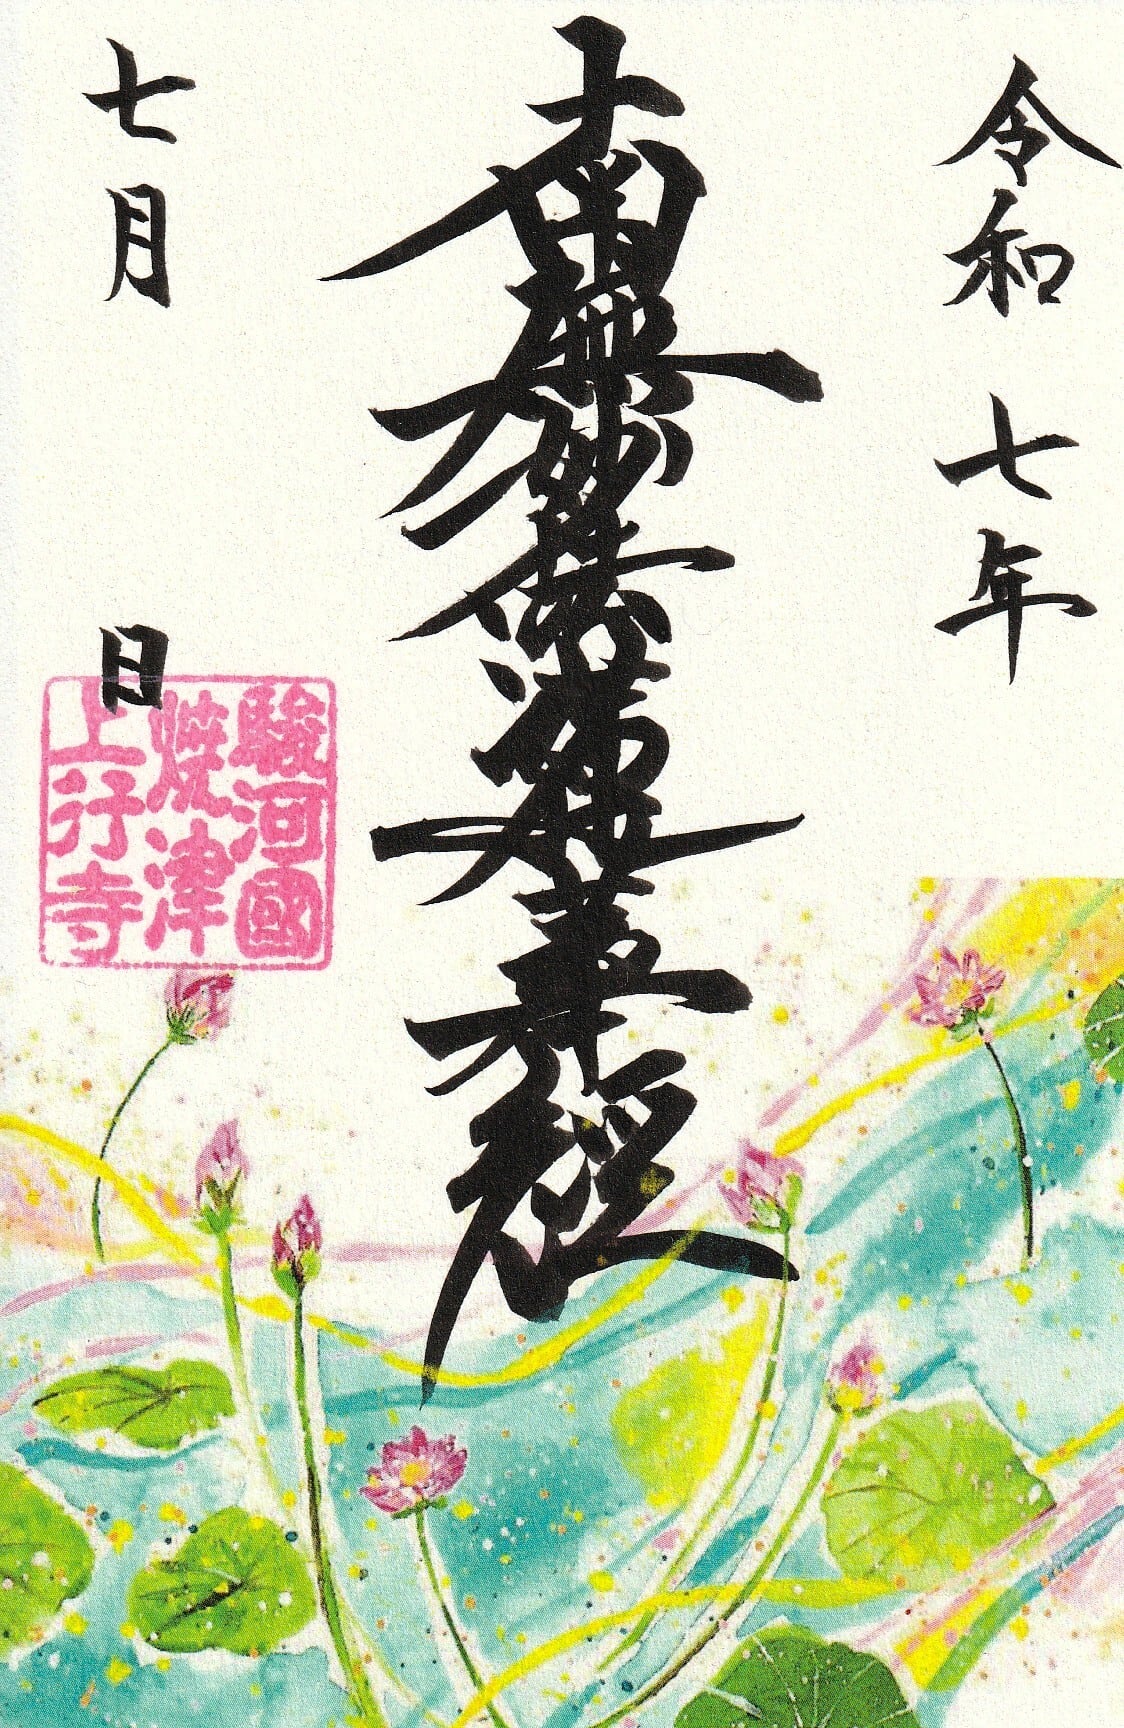 令和七年
南無妙法蓮華経
七月 日
駿河國
焼津
上行寺